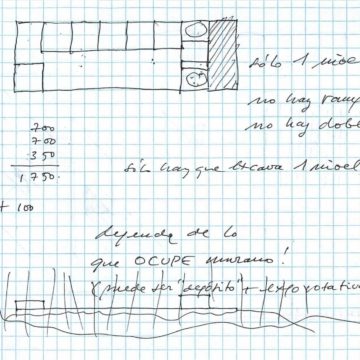 sólo 1 nivel
no hay ramp
no hay dobl
700
700
350
1750.
sólo hay que excava 1 nivel
+ 100
depende de lo
que OCUPE murano!
(puede ser "depósito" + expo rotativ